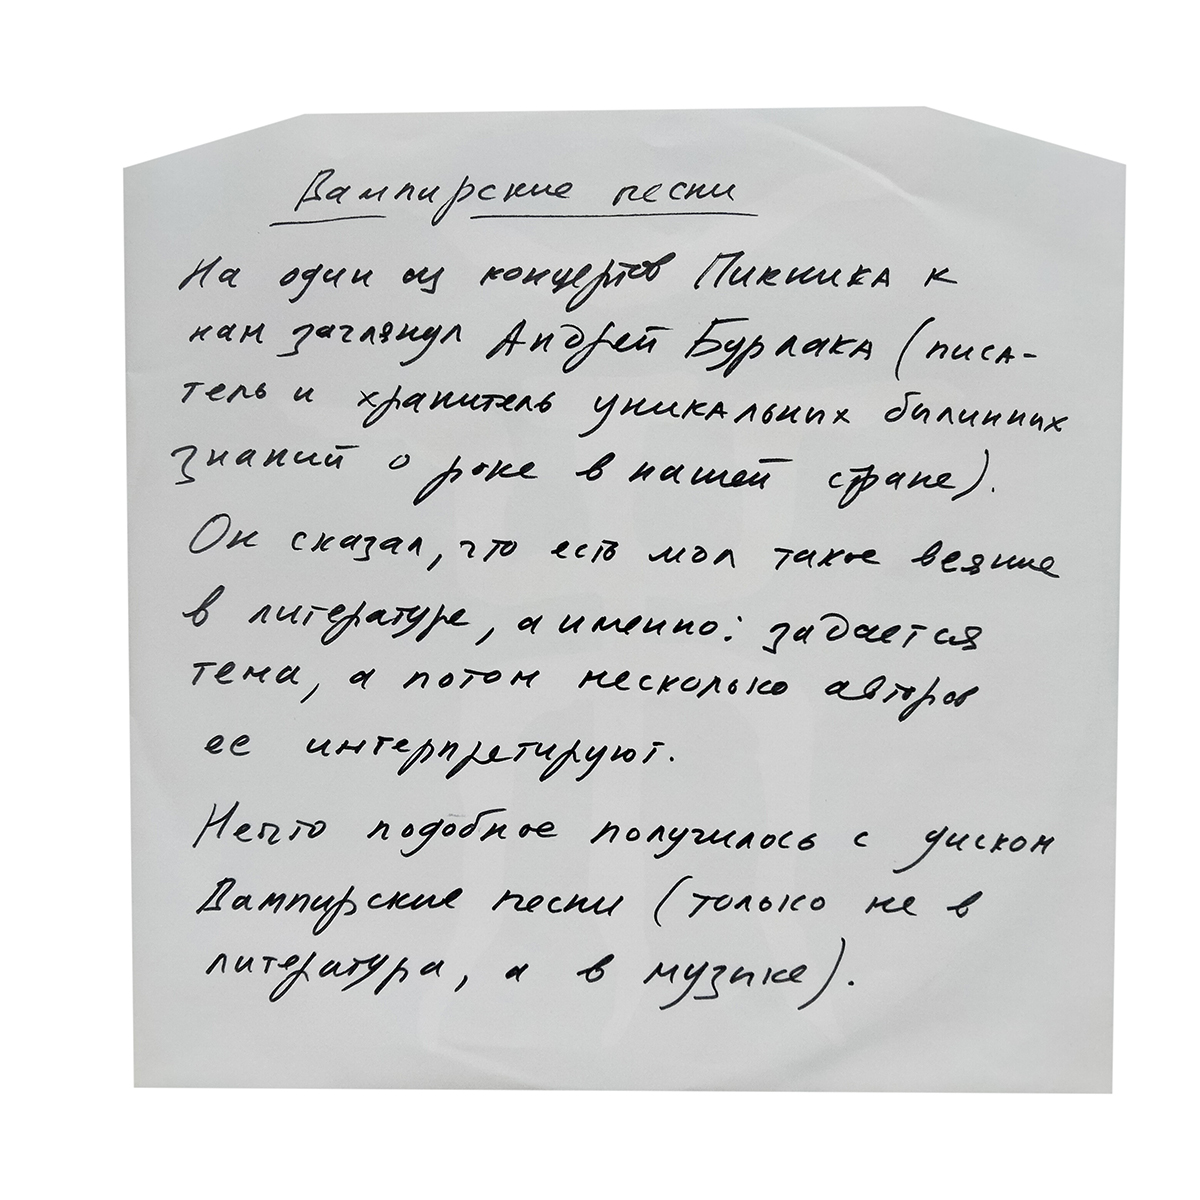 Вампирские песни
На один из концертов Пикника к
нам заглянул Андрей Бурлака (писа-
тель и хранитель уникальных былинных
знаний о роке в нашей стране).
Он сказал, что есть мол такое веяние
в литературе, а именно: задается
тема, а потом несколько авторов
ее интерпретируют.
Нечто подобное получилось с диском
Вампирские песни (только не в
литература, а в музыке).